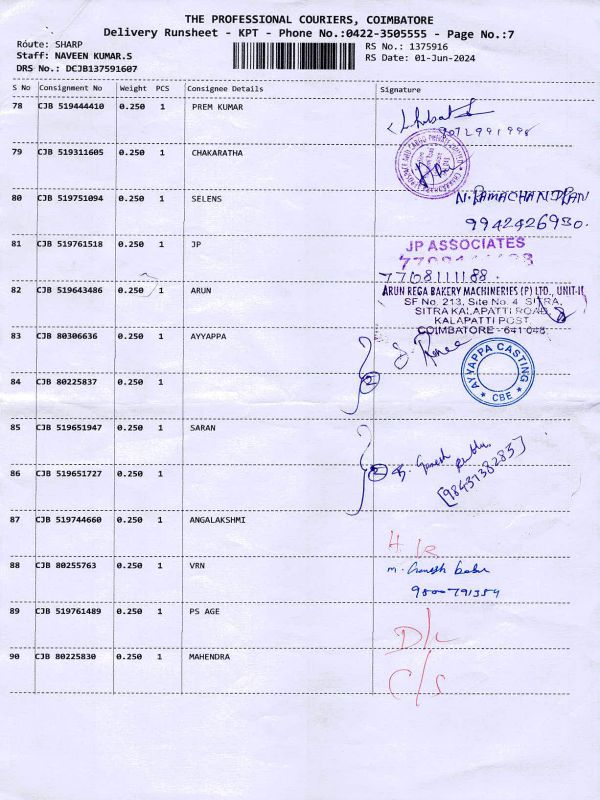 THE PROFESSIONAL COURIERS, COIMBATORE
Delivery Runsheet - KPT - Phone No.:0422-3505555 - Page No.:7
Route: SHARP
RS No.: 1375916
Staff: NAVEEN KUMAR.S
RS Date: 01-Jun-2024
DRS No.: DCJB137591607
S No Consignment No Weight PCS Consignee Details Signature
78 CJB 519444410 0.250 1 PREM KUMAR
79 CJB 519311605 0.250 1 CHAKARATHA
80 CJB 519751094 0.250 1 SELENS N. RAMACHANDRAN
9942426930.
81 CJB 519761518 0.250 1 JP JP ASSOCIATES
7708111188.
82 CJB 519643486 0.250 1 ARUN ARUN REGA BAKERY MACHINERIES (P) LTD., UNIT-II
SF No. 213, Site No. 4 SITRA,
SITRA KALAPATTI ROAD,
KALAPATTI POST,
COIMBATORE - 641 048.
83 CJB 80306636 0.250 1 AYYAPPA AYYAPPA CASTING
CBE
2
84 CJB 80225837 0.250 1
85 CJB 519651947 0.250 1 SARAN
86 CJB 519651727 0.250 1 2
87 CJB 519744660 0.250 1 ANGALAKSHMI
88 CJB 80255763 0.250 1 VRN
89 CJB 519761489 0.250 1 PS AGE D/L
90 CJB 80225830 0.250 1 MAHENDRA C/S